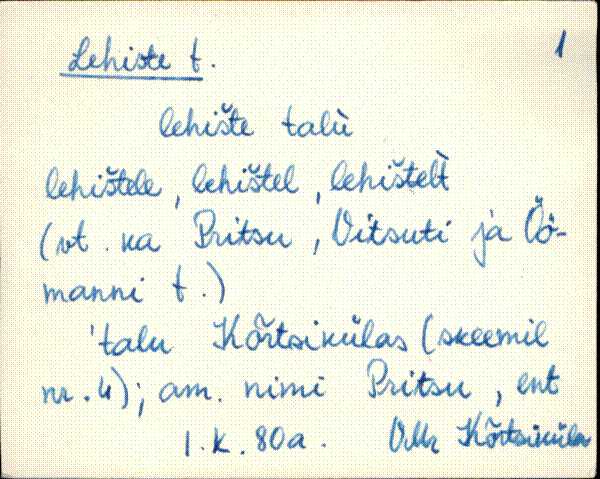 1
Lehiste t.
lehište talù
lehištele, lehištel, lehištelt̀
(vt. ka Pritsu, Vitsuti ja Öö-
manni t.)
'talu Kõrtsikülas (skeemil
nr. 4); am. nimi Pritsu, ent
1. k. 80a. Vll Kõrtsiküla